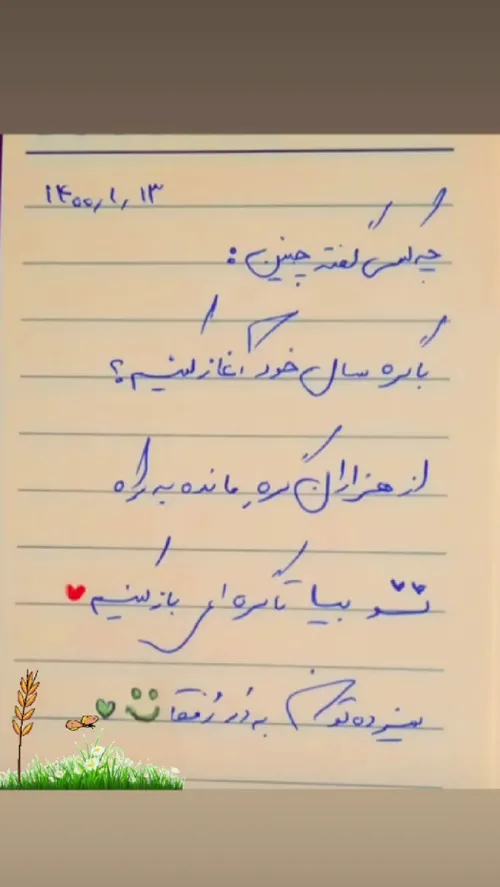 ۱۴۰۰٫۱٫۱۳
چه کسی گفته چنین :
با گره سال خود آغاز کنیم ؟
از هزاران گرهِ مانده به راه
تو بیا تا گره ای باز کنیم
سیزده تون به در رُفقا